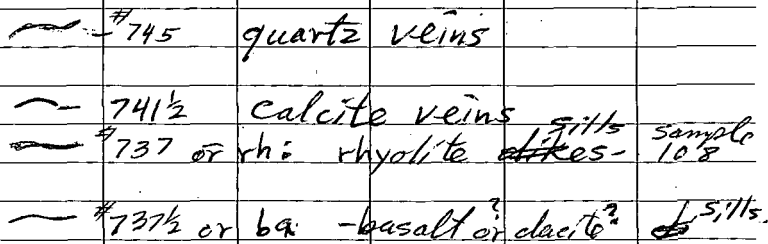 #745 quartz veins
741½ calcite veins
#737 or rh: rhyolite dikes- sills sample 108
#737½ or ba: -basalt? or dacite? sills.